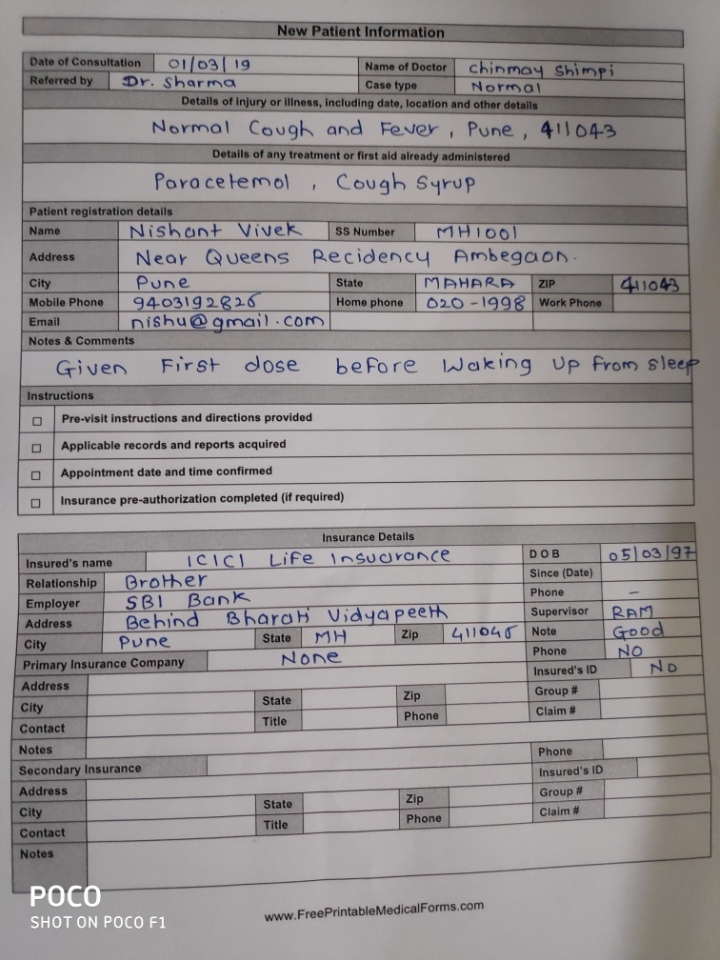 New Patient Information
Date of Consultation 01/03/19 Name of Doctor Chinmay Shimpi
Referred by Dr. Sharma Case type Normal
Details of injury or illness, including date, location and other details
Normal Cough and Fever, Pune, 411043
Details of any treatment or first aid already administered
Paracetemol, Cough Syrup
Patient registration details
Name Nishant Vivek SS Number MH1001
Address Near Queens Recidency Ambegaon.
City Pune State MAHARA ZIP 411043
Mobile Phone 9403192826 Home phone 020-1998 Work Phone
Email nishu@gmail.com
Notes & Comments
Given First dose before Waking Up from sleep
Instructions
Pre-visit instructions and directions provided
Applicable records and reports acquired
Appointment date and time confirmed
Insurance pre-authorization completed (if required)
Insurance Details
Insured's name ICICI Life Insuarance DOB 05/03/97
Relationship Brother Since (Date)
Employer SBI Bank Phone –
Address Behind Bharati Vidyapeeth Supervisor RAM
City Pune State MH Zip 411046 Note Good
Primary Insurance Company None Phone NO
Address Insured's ID NO
City State Zip Group #
Contact Title Phone Claim #
Notes
Secondary Insurance Phone
Address Insured's ID
City State Zip Group #
Contact Title Phone Claim #
Notes
www.FreePrintableMedicalForms.com
POCO
SHOT ON POCO F1